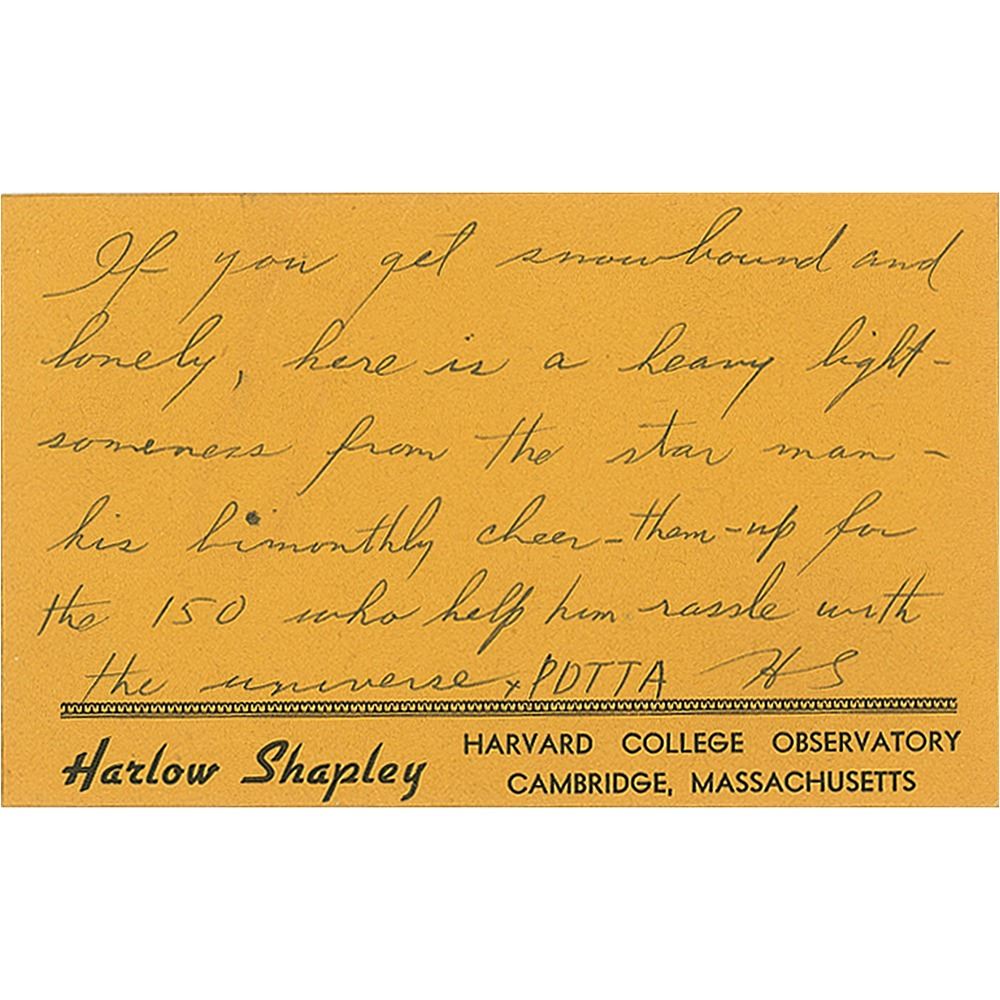 If you get snowbound and
lonely, here is a heavy light-
someness from the star man -
his bimonthly cheer-them-up for
the 150 who help him rassle with
the universe + POTTA HS
Harlow Shapley
HARVARD COLLEGE OBSERVATORY
CAMBRIDGE, MASSACHUSETTS